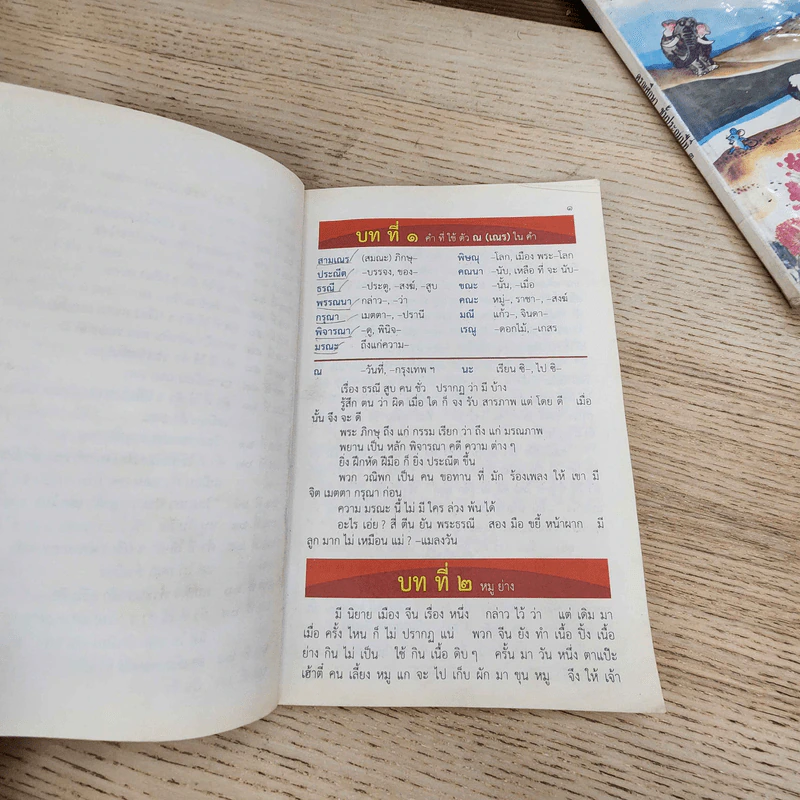 ๑
บท ที่ ๑ คำ ที่ ใช้ ตัว ณ (เณร) ใน คำ
สามเณร (สมณะ) ภิกษุ– พิษณุ –โลก, เมือง พระ–โลก
ประณีต –บรรจง, ของ– คณนา –นับ, เหลือ ที่ จะ นับ–
ธรณี –ประตู, –สงฆ์, –สูบ ขณะ –นั้น, –เมื่อ
พรรณนา กล่าว–, –ว่า คณะ หมู่–, ราชา–, –สงฆ์
กรุณา เมตตา–, –ปรานี มณี แก้ว–, จินดา–
พิจารณา –ดู, พินิจ– เรณู –ดอกไม้, –เกสร
มรณะ ถึงแก่ความ–
ณ –วันที่, –กรุงเทพ ฯ นะ เรียน ซิ–, ไป ซิ–
เรื่อง ธรณี สูบ คน ชั่ว ปรากฏ ว่า มี บ้าง
รู้สึก ตน ว่า ผิด เมื่อ ใด ก็ จง รับ สารภาพ แต่ โดย ดี เมื่อ
นั้น จึง จะ ดี
พระ ภิกษุ ถึง แก่ กรรม เรียก ว่า ถึง แก่ มรณภาพ
พยาน เป็น หลัก พิจารณา คดี ความ ต่าง ๆ
ยิ่ง ฝึกหัด ฝีมือ ก็ ยิ่ง ประณีต ขึ้น
พวก วณิพก เป็น คน ขอทาน ที่ มัก ร้องเพลง ให้ เขา มี
จิต เมตตา กรุณา ก่อน
ความ มรณะ นี้ ไม่ มี ใคร ล่วง พ้น ได้
อะไร เอ่ย ? สี่ ตีน ยัน พระธรณี สอง มือ ขยี้ หน้าผาก มี
ลูก มาก ไม่ เหมือน แม่ ? –แมลงวัน
บท ที่ ๒ หมู ย่าง
มี นิยาย เมือง จีน เรื่อง หนึ่ง กล่าว ไว้ ว่า แต่ เดิม มา
เมื่อ ครั้ง ไหน ก็ ไม่ ปรากฏ แน่ พวก จีน ยัง ทำ เนื้อ ปิ้ง เนื้อ
ย่าง กิน ไม่ เป็น ใช้ กิน เนื้อ ดิบ ๆ ครั้น มา วัน หนึ่ง ตาแป๊ะ
เฮ้าตี่ คน เลี้ยง หมู แก จะ ไป เก็บ ผัก มา ขุน หมู จึง ให้ เจ้า